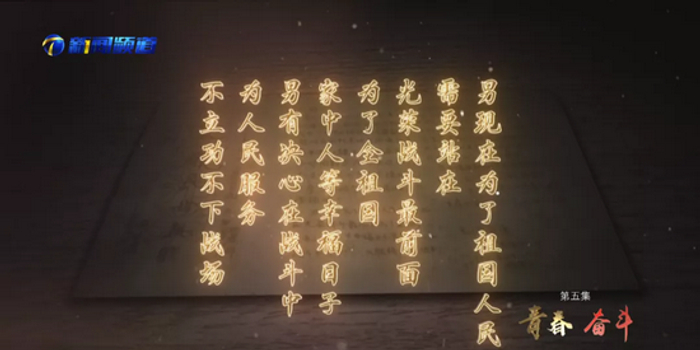 新闻频道
男现在为了祖国人民
需要站在
光荣战斗最前面
为了全祖国
家中人等幸福日子
男有决心在战斗中
为人民服务
不立功不下战场
第五集
青春 奋斗